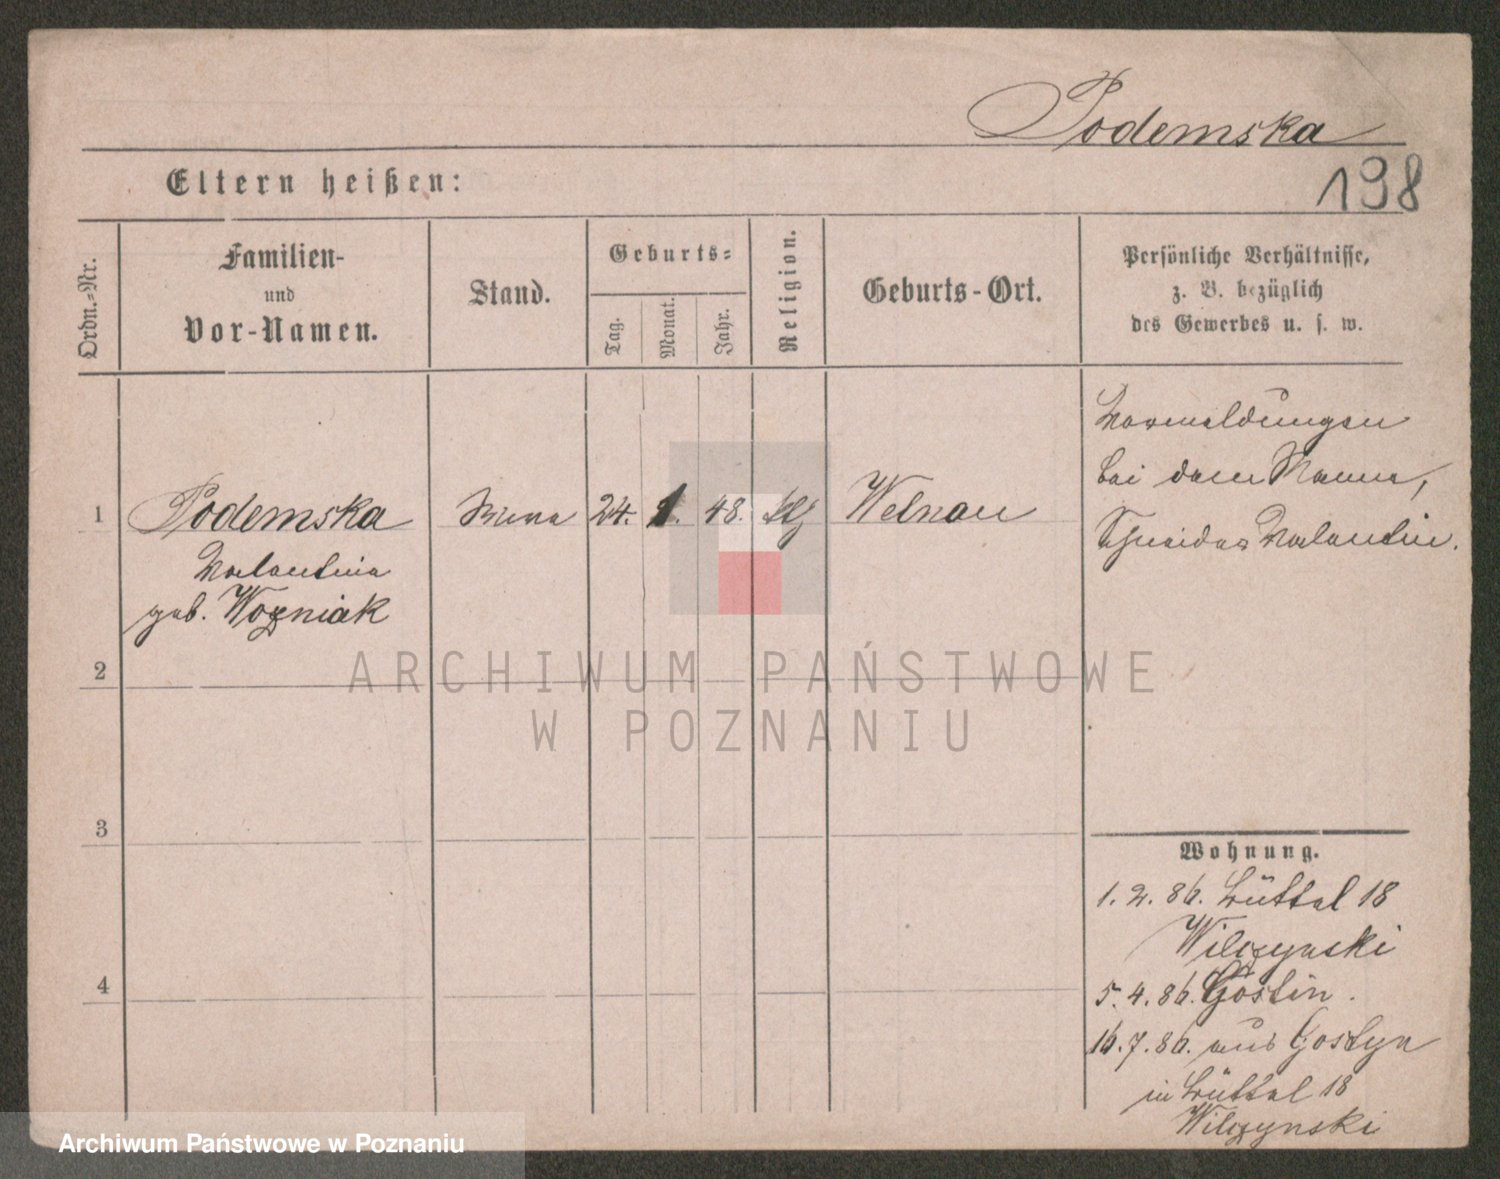 Podemska
198
Eltern heißen:
Ordn.-Nr.
Familien-
und
Vor-Namen.
Stand.
Geburts-
Tag.
Monat.
Jahr.
Religion.
Geburts-Ort.
Persönliche Verhältnisse,
z. B. bezüglich
des Gewerbes u. s. w.
1
Podemska
Valentina
geb. Wozniak
24. 1. 48.
Welnau
Vormeldungen
bei dem Manne,
Schneider Valentin.
2
3
4
Wohnung.
1. 2. 86. Büttel 18
Wilczynski
5. 4. 86. Gostin.
16. 7. 86. aus Gostyn
in Büttel 18
Wilczynski
ARCHIWUM PAŃSTWOWE
W POZNANIU
Archiwum Państwowe w Poznaniu